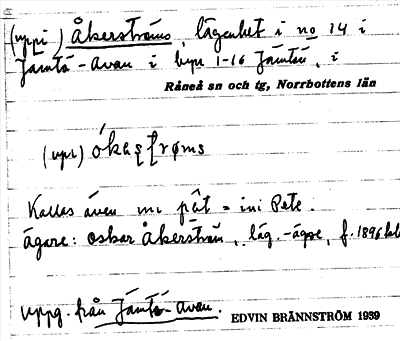 (uppi) Åkerströms, lägenhet i no 14 i
Jämtö-Avan i byn 1-16 Jämtön, i
Råneå sn och tg, Norrbottens län
(upi)
Kallas även ini påt = ini Pete.
ägare: Oskar Åkerström, läg.-ägare, f. 1896
Uppg. från Jämtö-Avan.
EDVIN BRÄNNSTRÖM 1939